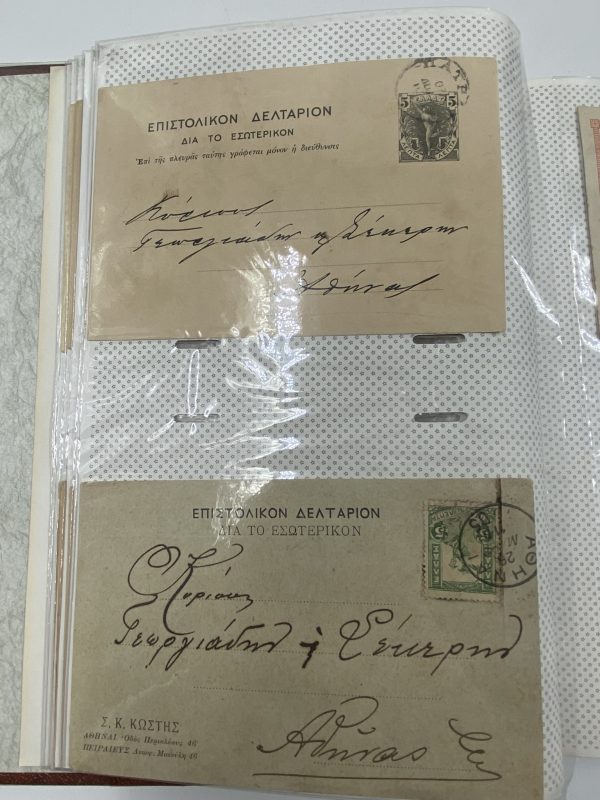 ΕΠΙΣΤΟΛΙΚΟΝ ΔΕΛΤΑΡΙΟΝ
ΔΙΑ ΤΟ ΕΣΩΤΕΡΙΚΟΝ
Ἐπὶ τῆς πλευρᾶς ταύτης γράφεται μόνον ἡ διεύθυνσις
ΠΑΤΡ
5 ΕΛΛΑΣ 5
ΛΕΠΤΑ ΛΕΠΤΑ
Γεωργιάδην & Σέκερην
Ἀθήνας
ΕΠΙΣΤΟΛΙΚΟΝ ΔΕΛΤΑΡΙΟΝ
ΔΙΑ ΤΟ ΕΣΩΤΕΡΙΚΟΝ
ΑΘΗΝ
29 Μ
05
Κυρίους
Γεωργιάδην & Σέκερην
Ἀθήνας
Σ. Κ. ΚΩΣΤΗΣ
ΑΘΗΝΑΙ Ὁδὸς Περικλέους 46
ΠΕΙΡΑΙΕΥΣ Λεωφ. Μακούλη 46